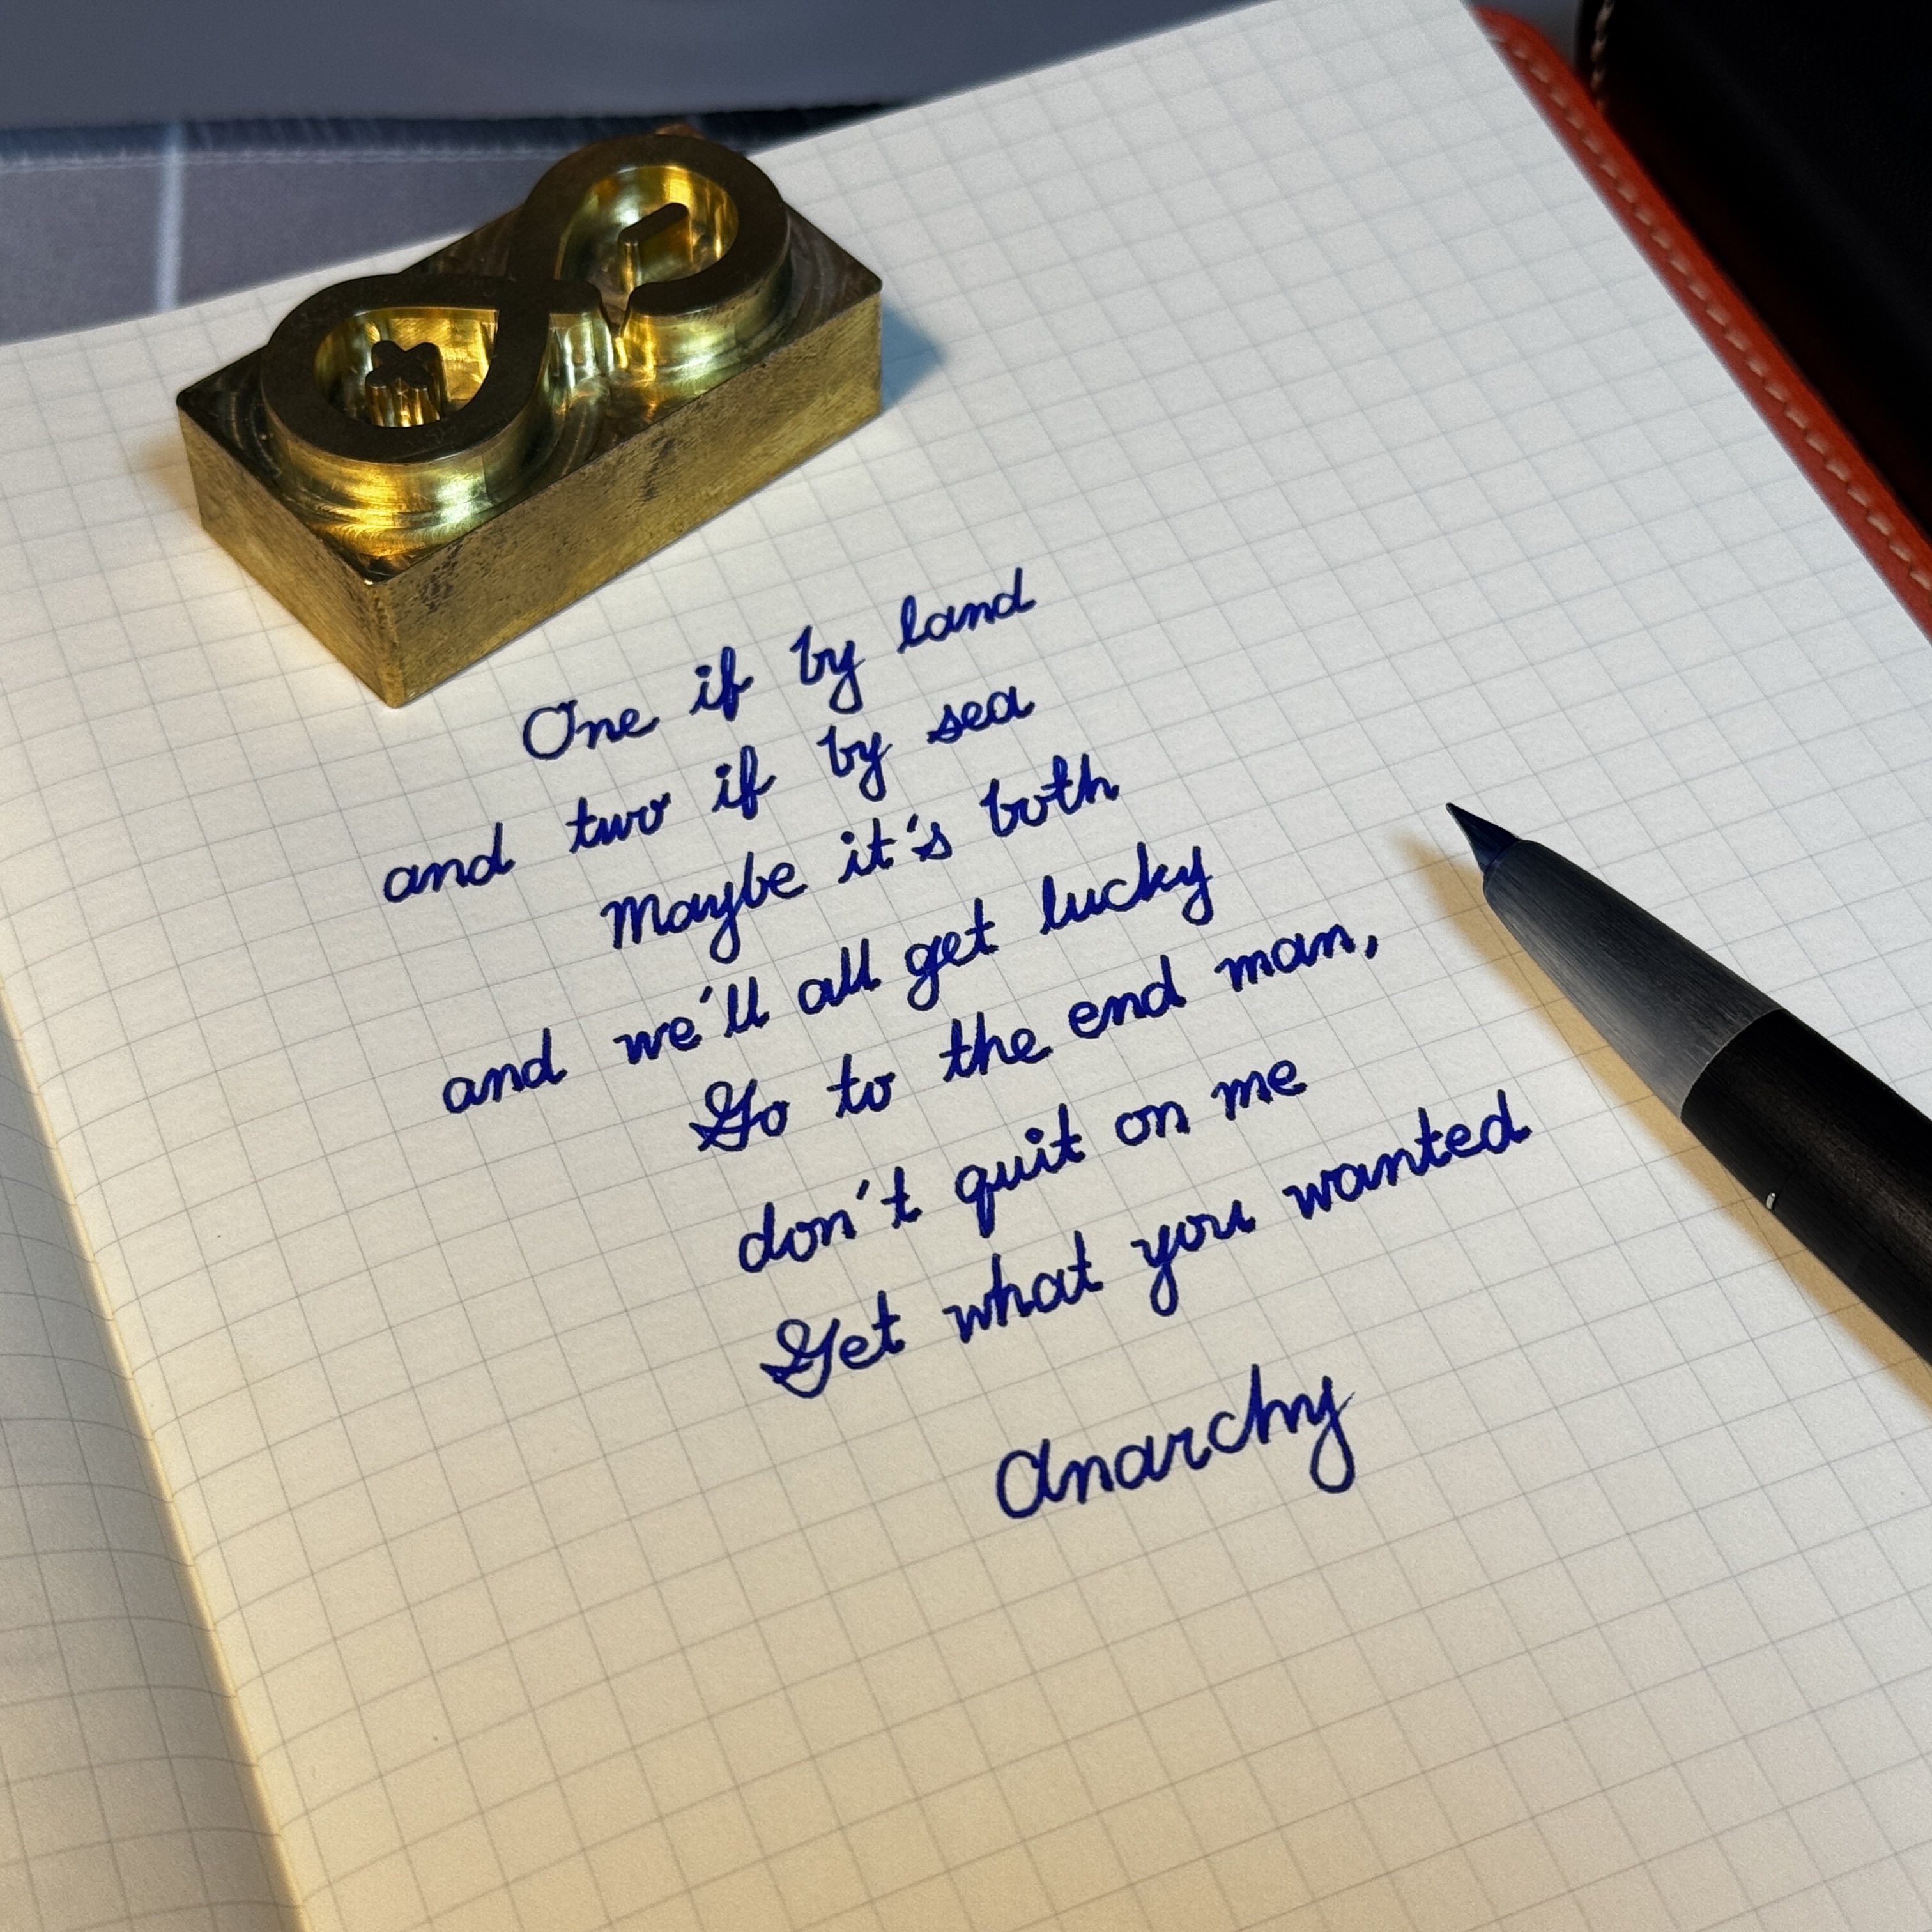 One if by land
and two if by sea
Maybe it's both
and we'll all get lucky
Go to the end man,
don't quit on me
Get what you wanted
Anarchy